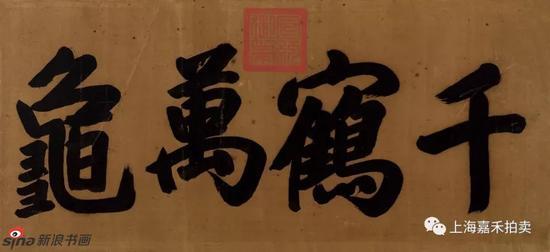 千鶴萬龜
sina 新浪书画
上海嘉禾拍卖